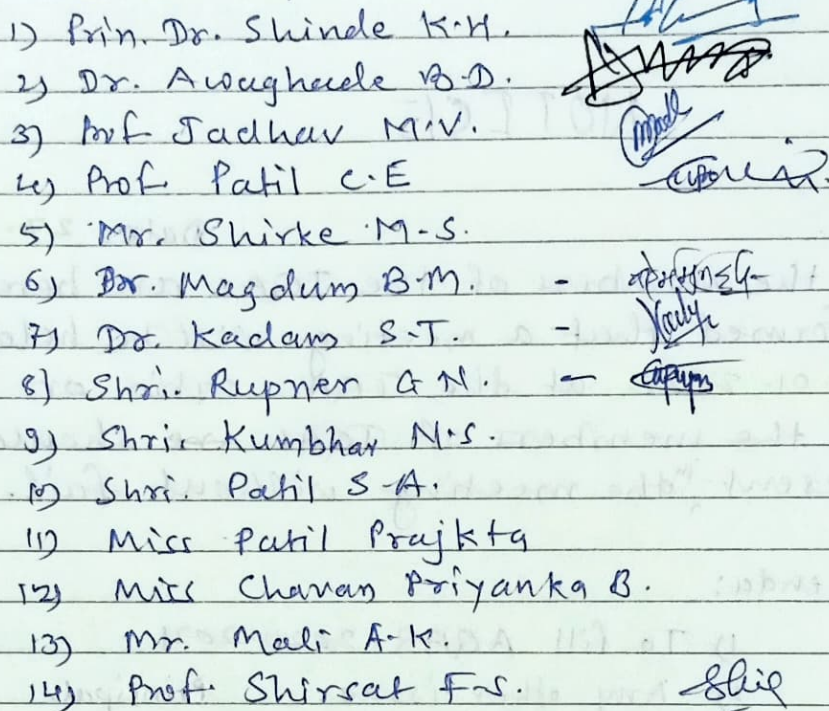 1) Prin. Dr. Shinde K.H.
2) Dr. Awaghade B.D.
3) Prof Jadhav M.V.
4) Prof. Patil C.E
5) Mr. Shirke M.S.
6) Dr. Magdum B.M. -
7) Dr. Kadam S.T. -
8) Shri. Rupner G N. -
9) Shri. Kumbhar N.S.
10) Shri. Patil S.A.
11) Miss Patil Prajkta
12) Miss Chavan Priyanka B.
13) Mr. Mali A.K.
14) Prof. Shirsat F.S.